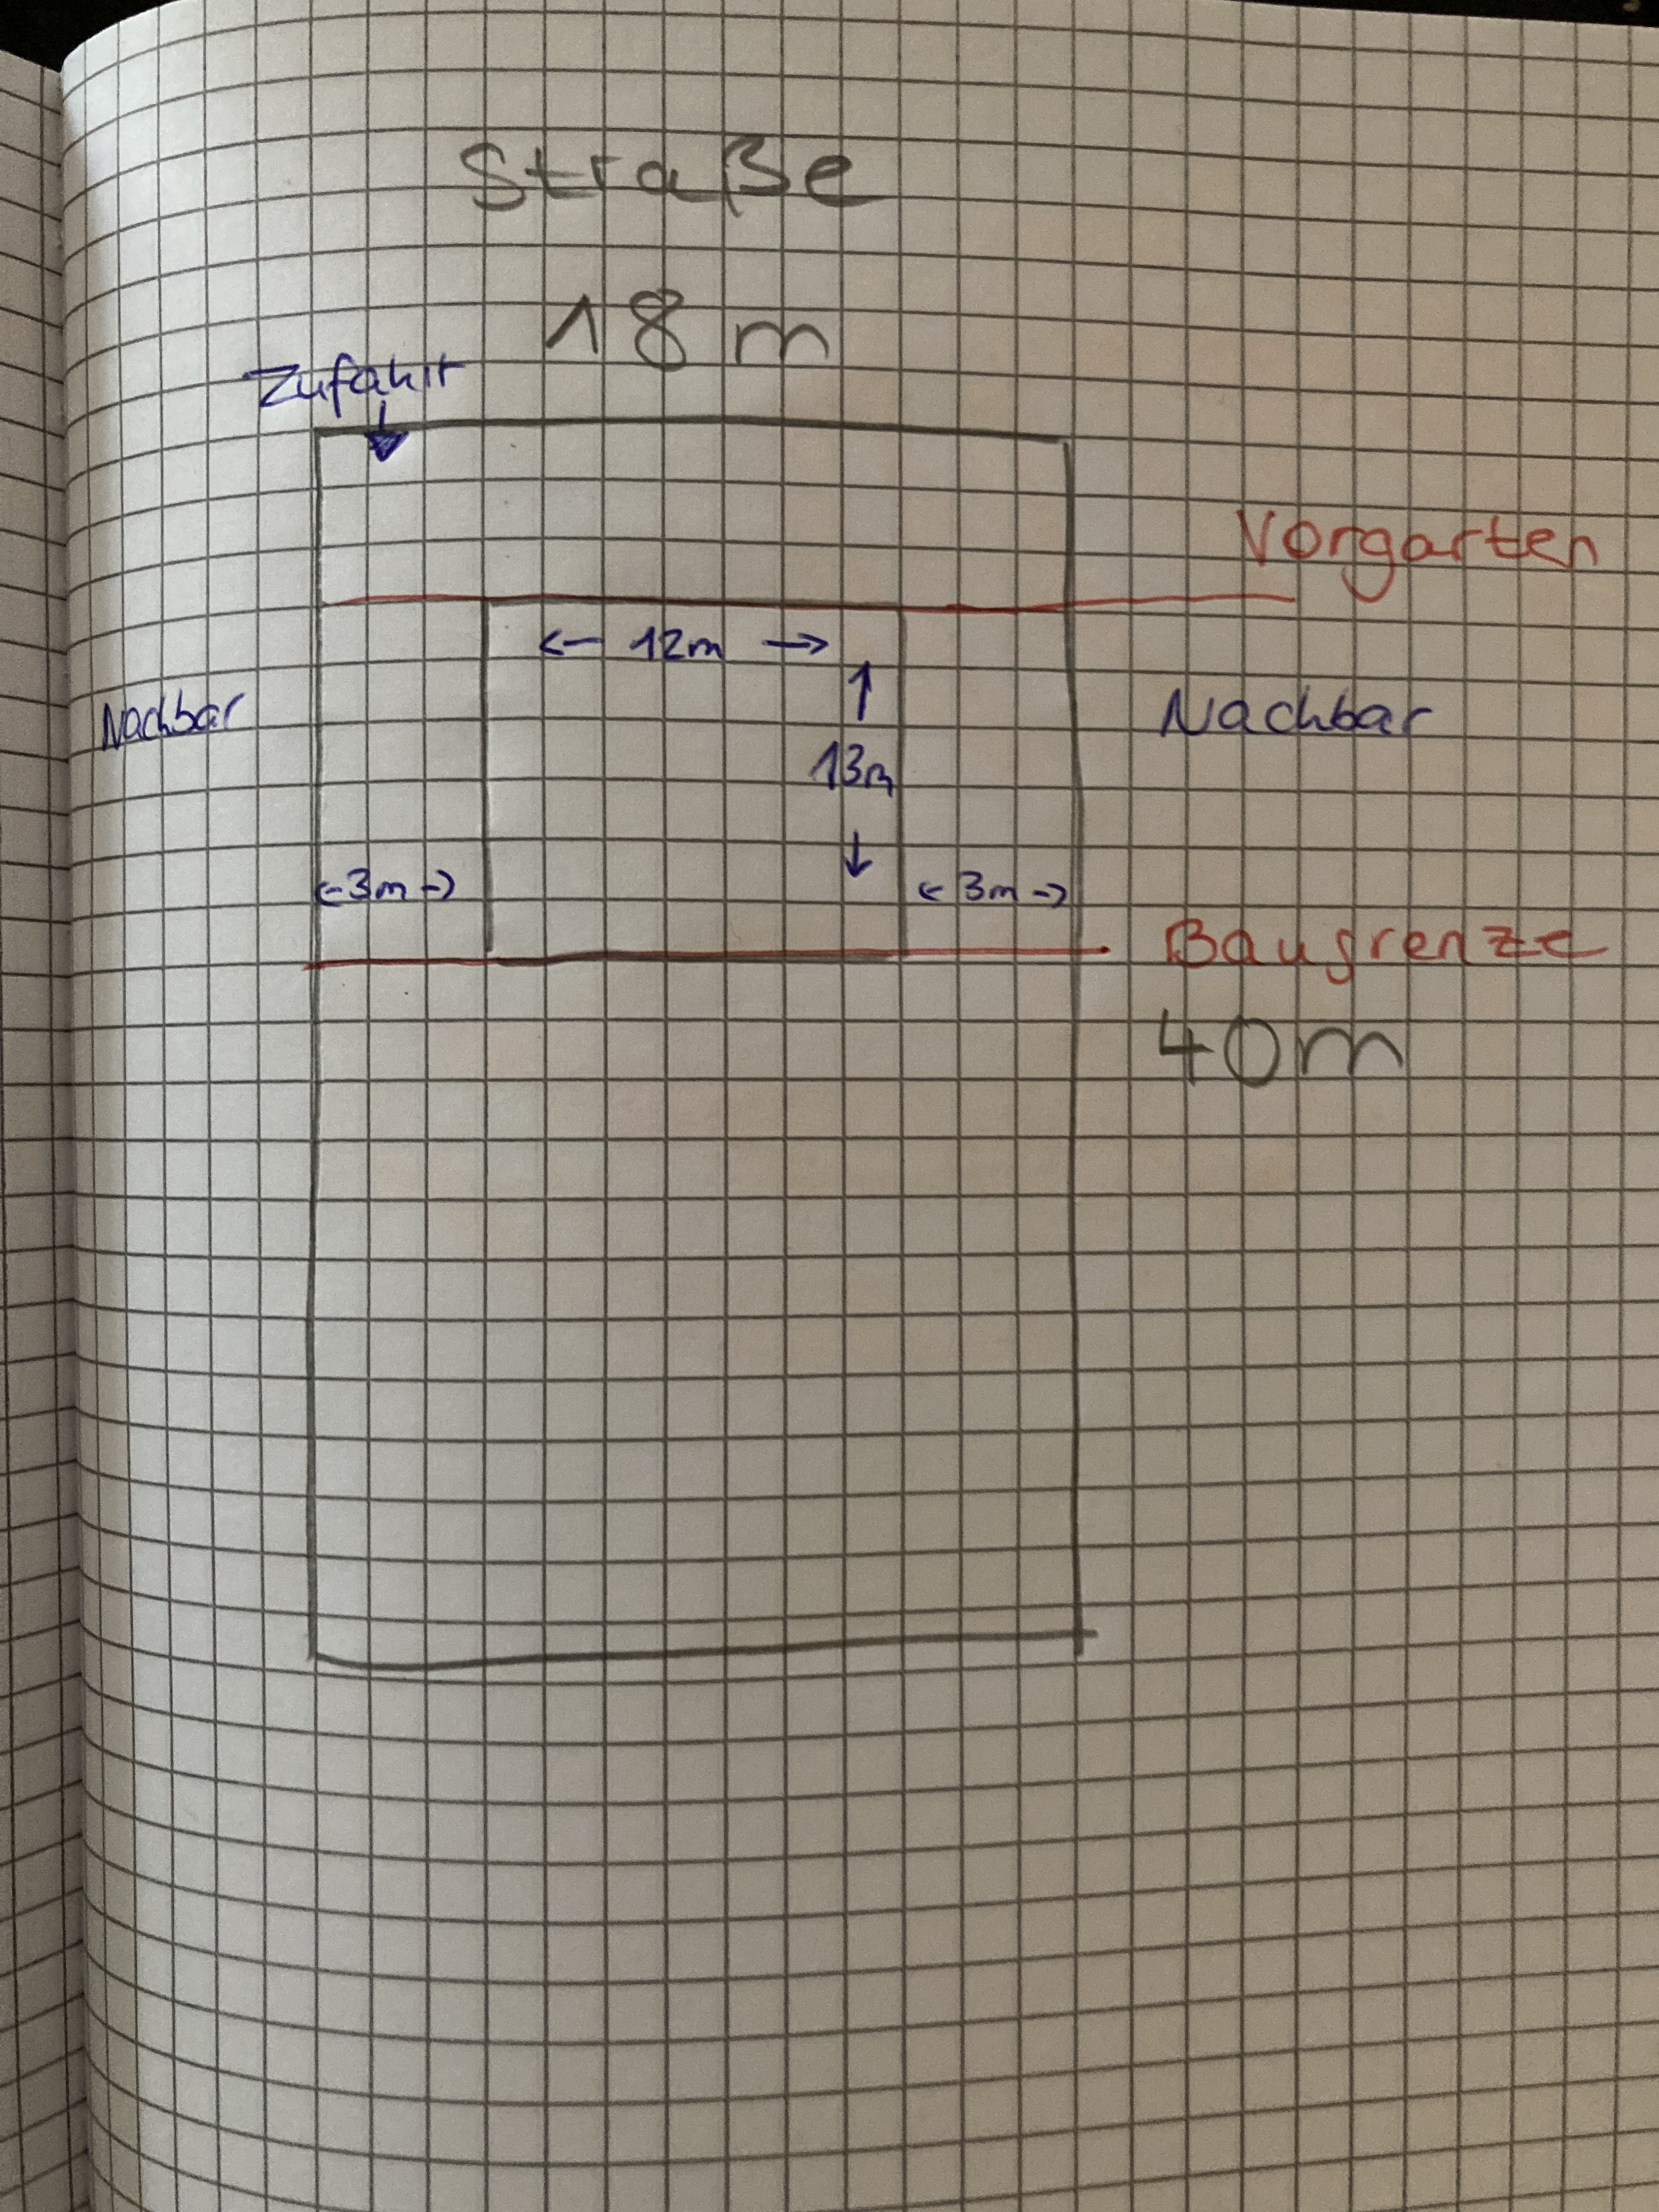 Straße
18 m
Zufahrt
Vorgarten
12m
Nachbar
Nachbar
13m
3m
3m
Baugrenze
40m